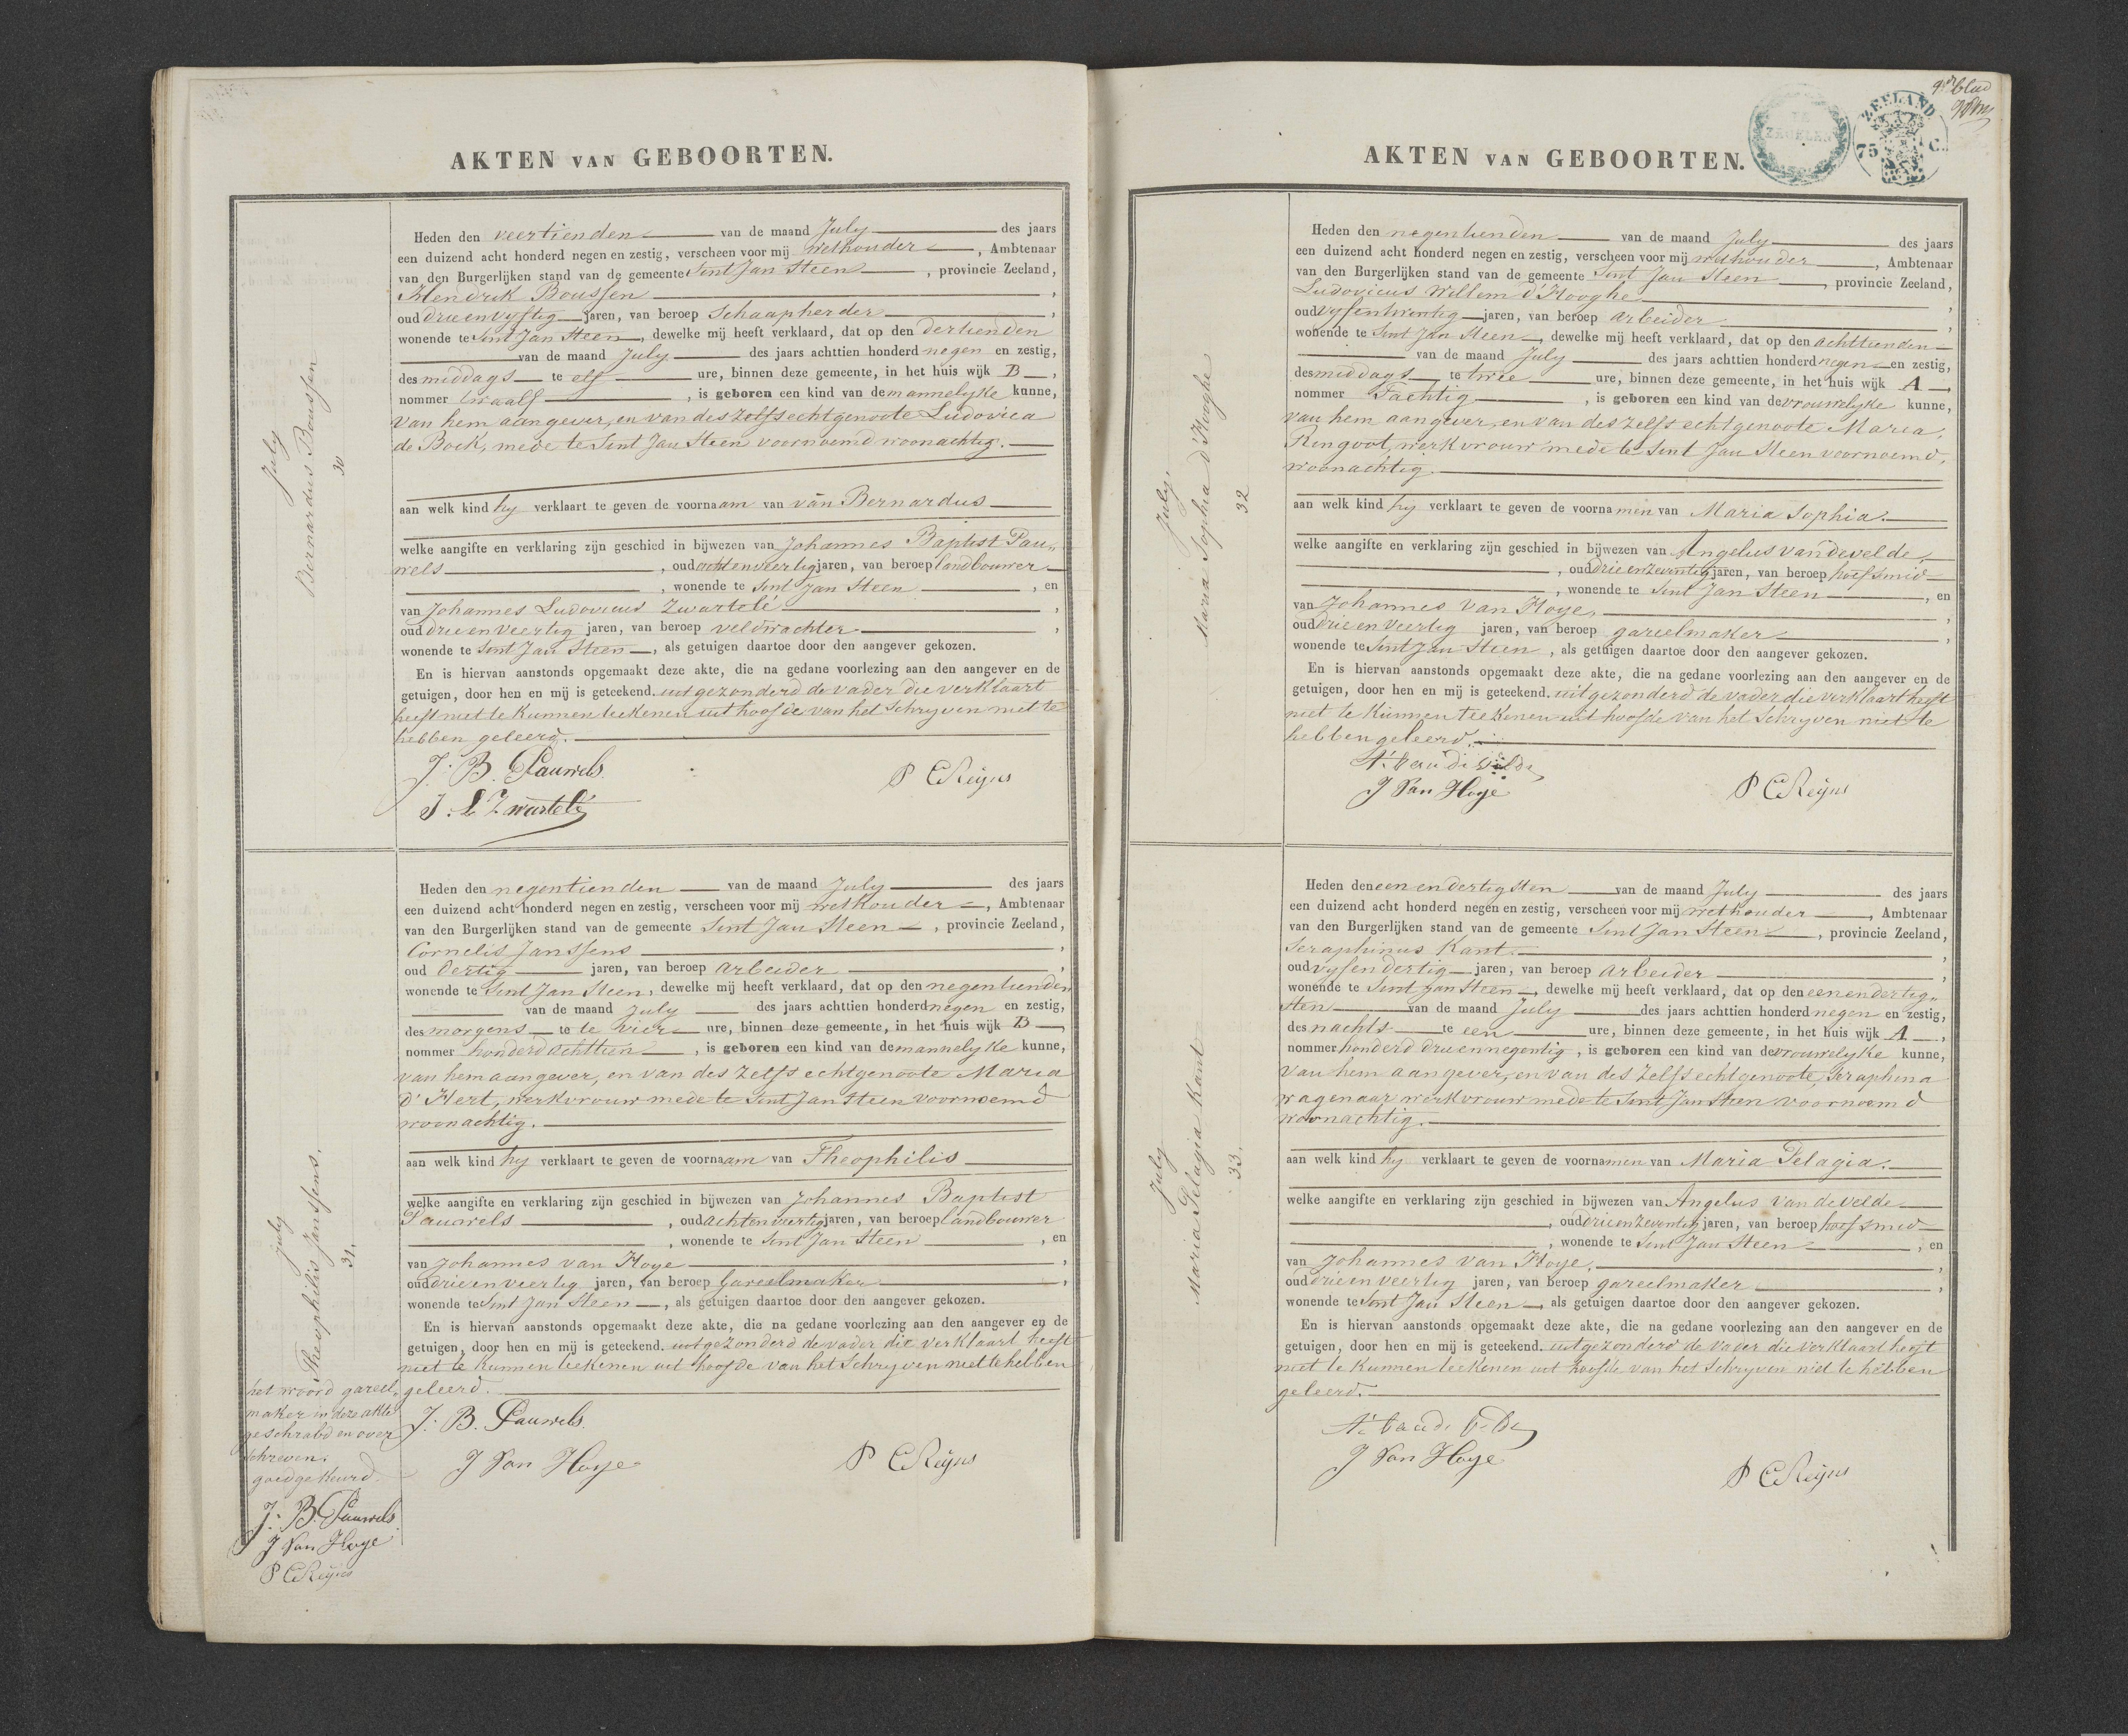 AKTEN VAN GEBOORTEN.
July
Bernardus Boussen
30
Heden den veertienden van de maand July des jaars
een duizend acht honderd negen en zestig, verscheen voor mij wethouder, Ambtenaar
van den Burgerlijken stand van de gemeente Sint Jan Steen, provincie Zeeland,
Hendrik Boussen,
oud drie en vyftig jaren, van beroep Schaapherder,
wonende te Sint Jan Steen, dewelke mij heeft verklaard, dat op den dertienden
van de maand July des jaars achttien honderd negen en zestig,
des middags te elf ure, binnen deze gemeente, in het huis wijk B,
nommer twaalf, is geboren een kind van de mannelyke kunne,
van hem aangever, en van des zelfs echtgenoote Ludovica
de Bock, mede te Sint Jan Steen voornoemd woonachtig.
aan welk kind hy verklaart te geven de voornaam van van Bernardus
welke aangifte en verklaring zijn geschied in bijwezen van Johannes Baptist Pau„
wels, oud acht en veertig jaren, van beroep landbouwer
, wonende te Sint Jan Steen, en
van Johannes Ludovicus Zwartelé,
oud drie en veertig jaren, van beroep veldwachter,
wonende te Sint Jan Steen, als getuigen daartoe door den aangever gekozen.
En is hiervan aanstonds opgemaakt deze akte, die na gedane voorlezing aan den aangever en de
getuigen, door hen en mij is geteekend. uitgezonderd de vader die verklaart
heeft niet te kunnen teekenen uit hoofde van het Schryven niet te
hebben geleerd.
J. B. Pauwels
P C Reijns
J. L Zwartelé
July
Theophilis Janssens.
31.
Heden den negentienden van de maand July des jaars
een duizend acht honderd negen en zestig, verscheen voor mij wethouder, Ambtenaar
van den Burgerlijken stand van de gemeente Sint Jan Steen, provincie Zeeland,
Cornelis Janssens,
oud dertig jaren, van beroep arbeider,
wonende te Sint Jan Steen, dewelke mij heeft verklaard, dat op den negentienden
van de maand July des jaars achttien honderd negen en zestig,
des morgens te te vier ure, binnen deze gemeente, in het huis wijk B,
nommer honderd achttien, is geboren een kind van de mannelyke kunne,
van hem aangever, en van des zelfs echtgenoote Maria
d' Hert, werkvrouw mede te Sint Jan Steen voornoemd
woonachtig.
aan welk kind hy verklaart te geven de voornaam van Theophilis
welke aangifte en verklaring zijn geschied in bijwezen van Johannes Baptist
Pauwels, oud acht en veertig jaren, van beroep landbouwer
, wonende te Sint Jan Steen, en
van Johannes van Hoye,
oud drie en veertig jaren, van beroep Gareelmaker,
wonende te Sint Jan Steen, als getuigen daartoe door den aangever gekozen.
En is hiervan aanstonds opgemaakt deze akte, die na gedane voorlezing aan den aangever en de
getuigen, door hen en mij is geteekend. uitgezonderd de vader die verklaart heeft
niet te kunnen teekenen uit hoofde van het Schryven niet te hebben
geleerd.
J. B. Pauwels
J Van Hoye
P C Reijns
het woord gareel„
maker in deze akte
geschrabd en over
schreven.
goedgekeurd.
J. B. Pauwels
J Van Hoye
P C Reijns
AKTEN VAN GEBOORTEN.
ZEELAND
75 C.
blad
July.
Maria Sophia d'Hooghe
32
Heden den negentienden van de maand July des jaars
een duizend acht honderd negen en zestig, verscheen voor mij wethouder, Ambtenaar
van den Burgerlijken stand van de gemeente Sint Jan Steen, provincie Zeeland,
Ludovicus Willem d'Hooghe,
oud vyfentwintig jaren, van beroep arbeider,
wonende te Sint Jan Steen, dewelke mij heeft verklaard, dat op den achttienden
van de maand July des jaars achttien honderd negen en zestig,
des middags te twee ure, binnen deze gemeente, in het huis wijk A,
nommer Tachtig, is geboren een kind van de vrouwelyke kunne,
van hem aangever, en van des zelfs echtgenoote Maria
Ringoot, werkvrouw mede te Sint Jan Steen voornoemd,
woonachtig.
aan welk kind hy verklaart te geven de voornamen van Maria Sophia.
welke aangifte en verklaring zijn geschied in bijwezen van Angelus van de velde
, oud drie en zeventig jaren, van beroep hoefsmid
, wonende te Sint Jan Steen, en
van Johannes Van Hoye,
oud drie en veertig jaren, van beroep gareelmaker,
wonende te Sint Jan Steen, als getuigen daartoe door den aangever gekozen.
En is hiervan aanstonds opgemaakt deze akte, die na gedane voorlezing aan den aangever en de
getuigen, door hen en mij is geteekend. uitgezonderd de vader die verklaart heeft
niet te kunnen teekenen uit hoofde van het Schryven niet te
hebben geleerd.
A. van de velde
J Van Hoye
P C Reijns
July
Maria Pelagia Kant
33.
Heden den een en dertigsten van de maand July des jaars
een duizend acht honderd negen en zestig, verscheen voor mij wethouder, Ambtenaar
van den Burgerlijken stand van de gemeente Sint Jan Steen, provincie Zeeland,
Seraphinus Kant.,
oud vyfendertig jaren, van beroep arbeider,
wonende te Sint Jan Steen, dewelke mij heeft verklaard, dat op den een en dertig„
sten van de maand July des jaars achttien honderd negen en zestig,
des nachts te een ure, binnen deze gemeente, in het huis wijk A,
nommer honderd drie en negentig, is geboren een kind van de vrouwelyke kunne,
van hem aangever, en van des zelfs echtgenoote, Seraphina
wagenaar werkvrouw mede te Sint Jan Steen voornoemd
woonachtig.
aan welk kind hy verklaart te geven de voornamen van Maria Pelagia.
welke aangifte en verklaring zijn geschied in bijwezen van Angelus van de velde
, oud drie en zeventig jaren, van beroep hoefsmid
, wonende te Sint Jan Steen, en
van Johannes van Hoye,
oud drie en veertig jaren, van beroep gareelmaker,
wonende te Sint Jan Steen, als getuigen daartoe door den aangever gekozen.
En is hiervan aanstonds opgemaakt deze akte, die na gedane voorlezing aan den aangever en de
getuigen, door hen en mij is geteekend. uitgezonderd de vader die verklaart heeft
niet te kunnen teekenen uit hoofde van het Schryven niet te hebben
geleerd.
A. van de Velde
J Van Hoye
P C Reijns